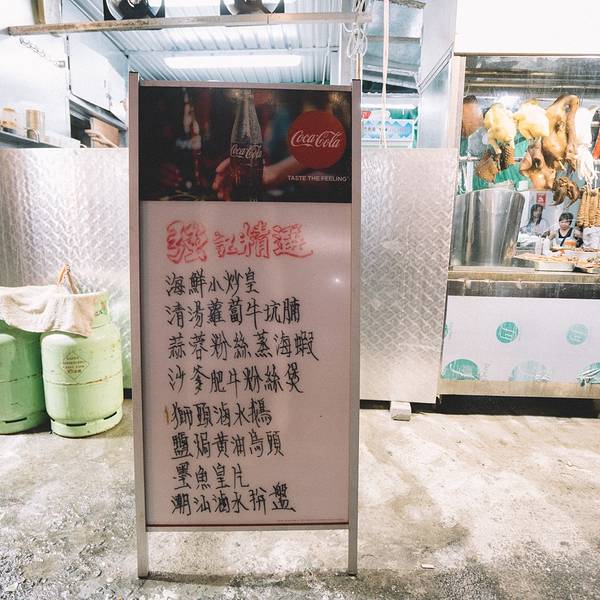 Coca-Cola
Coca-Cola
TASTE THE FEELING
強記精選
海鮮小炒皇
清湯蘿蔔牛坑腩
蒜蓉粉絲蒸海蝦
沙爹肥牛粉絲煲
獅頭滷水鵝
鹽焗黄油烏頭
墨魚皇片
潮汕滷水拚盤